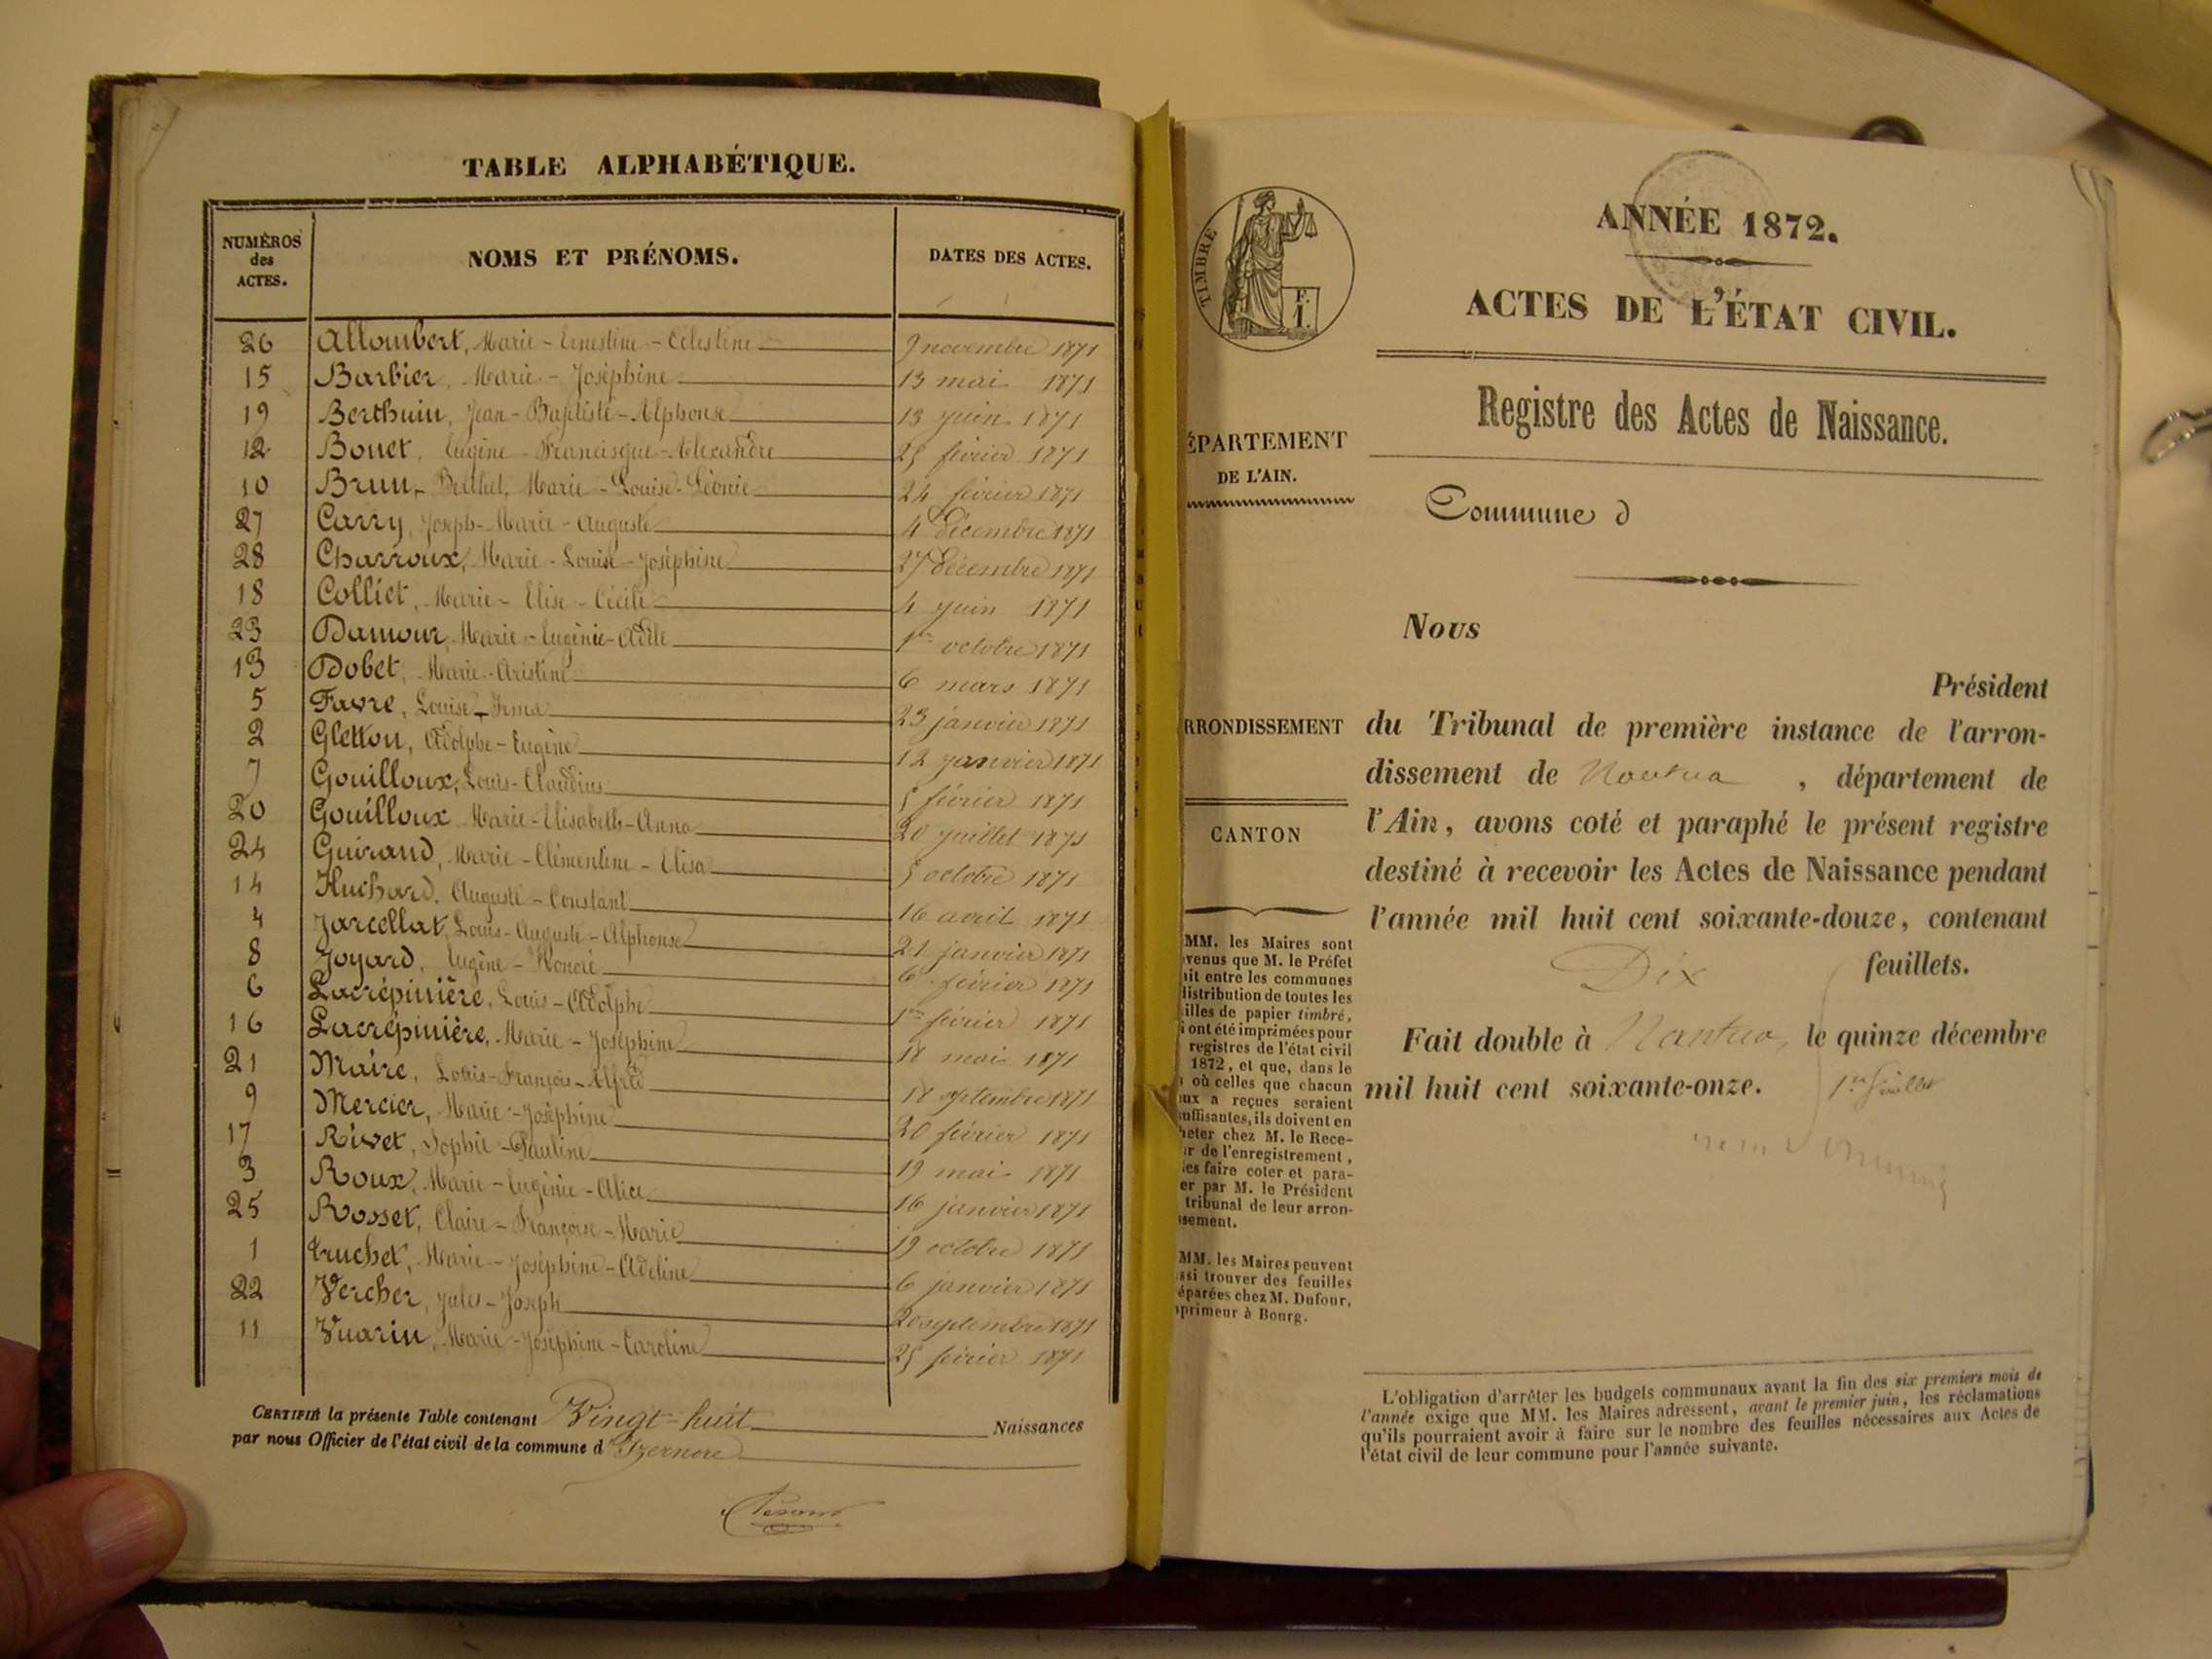 TABLE ALPHABÉTIQUE.
NUMÉROS des ACTES. NOMS ET PRÉNOMS. DATES DES ACTES.
26 Allombert, Marie-Ernestine-Célestine 9 novembre 1871
15 Barbier, Marie-Joséphine 13 mai 1871
19 Berthuin, Jean-Baptiste-Alphonse 13 juin 1871
12 Bouet, Eugène-Francisque-Alexandre 25 février 1871
10 Brun-Berthet, Marie-Louise-Léonie 24 février 1871
27 Carry, Joseph-Marie-Auguste 4 décembre 1871
28 Charroux, Marie-Louise-Joséphine 27 décembre 1871
18 Colliet, Marie-Elise-Cécile 4 juin 1871
23 Damour, Marie-Eugénie-Adèle 1er octobre 1871
13 Dobet, Marie-Aristine 6 mars 1871
5 Favre, Louise-Irma 23 janvier 1871
2 Gletton, Adolphe-Eugène 12 janvier 1871
7 Gouilloux, Louis-Claudius 5 février 1871
20 Gouilloux Marie-Elisabeth-Anna 20 juillet 1871
24 Guiraud, Marie-Clémentine-Elisa 5 octobre 1871
14 Huchard, Auguste-Constant 16 avril 1871
4 Jarcellat, Louis-Auguste-Alphonse 21 janvier 1871
8 Joyard, Eugène-Honoré 6 février 1871
6 Lacrépinière, Louis-Adolphe 1er février 1871
16 Lacrépinière, Marie-Joséphine 18 mai 1871
21 Maire, Louis-François-Alfred 18 septembre 1871
9 Mercier, Marie-Joséphine 20 février 1871
17 Rivet, Sophie-Pauline 19 mai 1871
3 Roux, Marie-Eugénie-Alice 16 janvier 1871
25 Rosset, Claire-Françoise-Marie 19 octobre 1871
1 Truchet, Marie-Joséphine-Adeline 6 janvier 1871
22 Vercher, Jules-Joseph 20 septembre 1871
11 Vuarin, Marie-Joséphine-Caroline 25 février 1871
CERTIFIÉ la présente Table contenant Vingt-huit Naissances
par nous Officier de l'état civil de la commune d'Izernore
TIMBRE
F.
1.
ÉPARTEMENT
DE L'AIN.
RRONDISSEMENT
CANTON
MM. les Maires sont
venus que M. le Préfet
ait entre les communes
distribution de toutes les
illes de papier timbré,
i ont été imprimées pour
registres de l'état civil
1872, et que, dans le
où celles que chacun
ux a reçues seraient
suffisantes, ils doivent en
heter chez M. le Rece-
r de l'enregistrement,
les faire coter et para-
er par M. le Président
tribunal de leur arron-
ssement.
MM. les Maires peuvent
ssi trouver des feuilles
éparées chez M. Dufour,
primeur à Bourg.
ANNÉE 1872.
ACTES DE L'ÉTAT CIVIL.
Registre des Actes de Naissance.
Commune d
Nous
Président
du Tribunal de première instance de l'arron-
dissement de Nantua, département de
l'Ain, avons coté et paraphé le présent registre
destiné à recevoir les Actes de Naissance pendant
l'année mil huit cent soixante-douze, contenant
Dix feuillets.
Fait double à Nantua, le quinze décembre
mil huit cent soixante-onze. 1er feuillet
L'obligation d'arrêter les budgets communaux avant la fin des six premiers mois de
l'année exige que MM. les Maires adressent, avant le premier juin, les réclamations
qu'ils pourraient avoir à faire sur le nombre des feuilles nécessaires aux Actes de
l'état civil de leur commune pour l'année suivante.